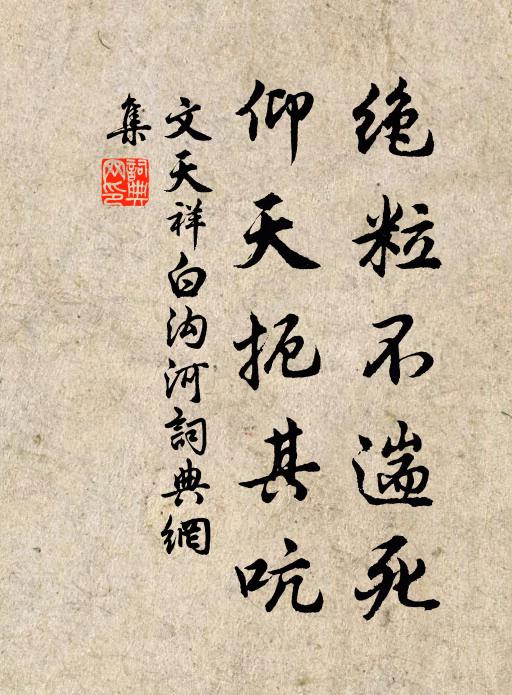 绝粒不遄死
仰天扼其吭
文天祥白沟河詞典網
集
詞典
网印